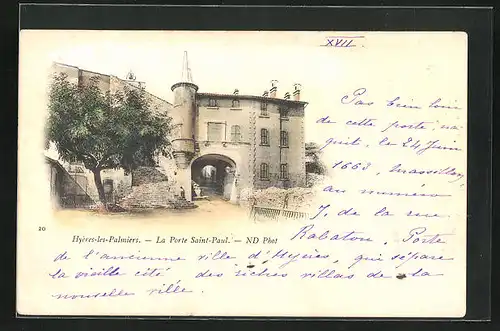 XVII
Pas bien loin
de cette porte, na-
quit, le 24 Juin
1663, Massillon,
au numéro
7. de la rue
Rabaton. Porte
20
Hyères-les-Palmiers. — La Porte Saint-Paul. — ND Phot
de l'ancienne ville d'Hyères, qui sépare
la vieille cité des riches villas de la
nouvelle ville.